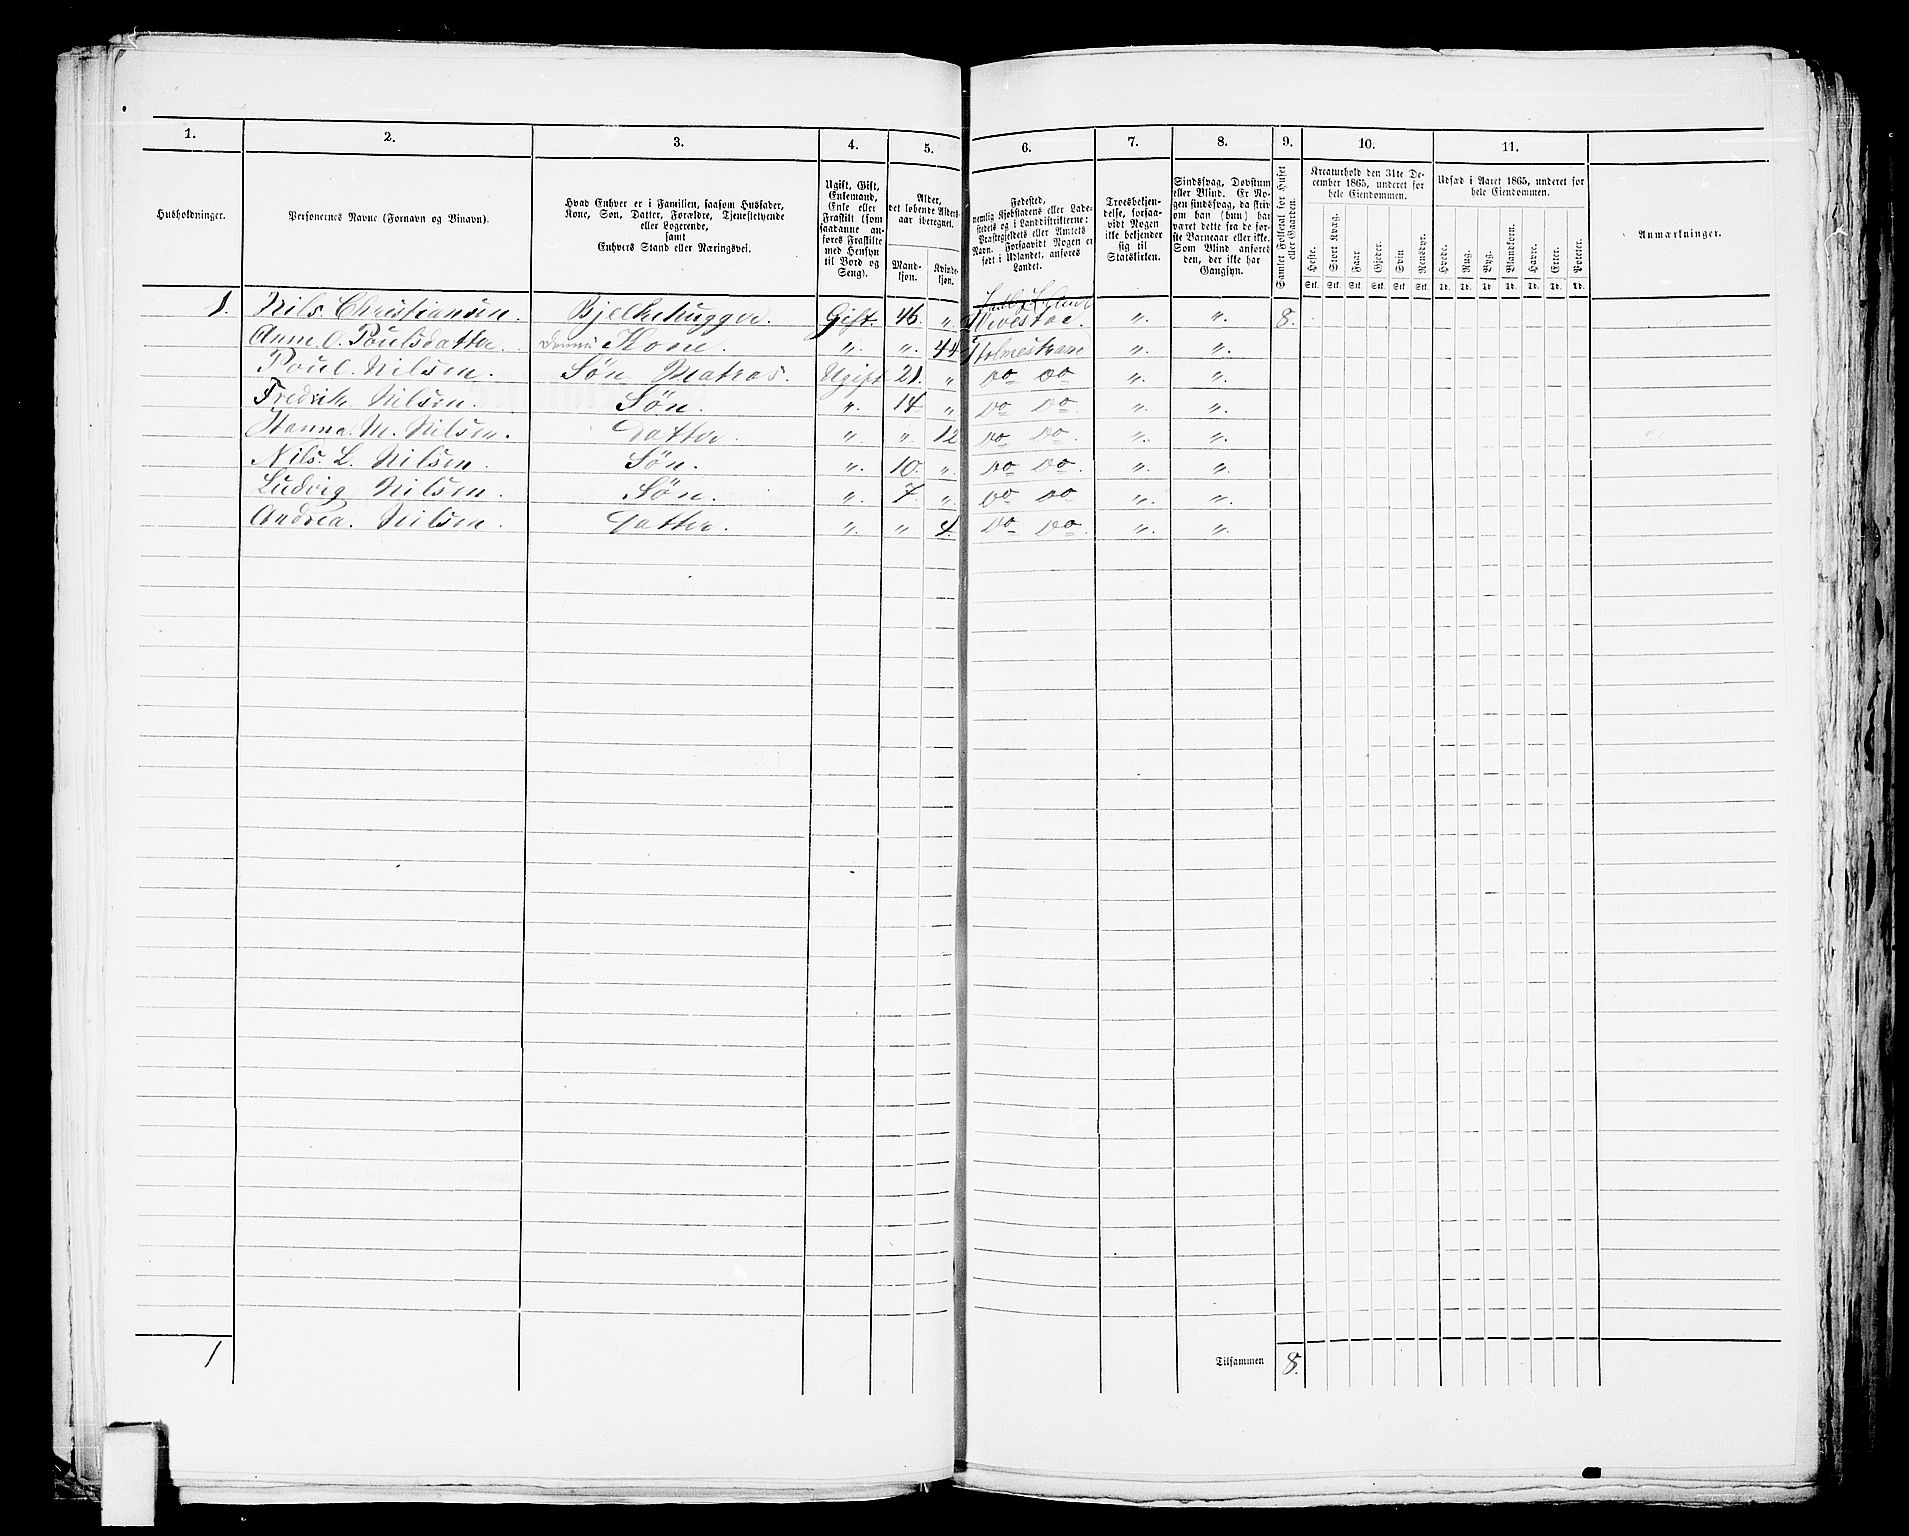 1. 2. 3. 4. 5. 6. 7. 8. 9. 10. 11.
Husholdninger.
Personernes Navne (Fornavn og Binavn).
Hvad Enhver er i Familien, saasom Husfader,
Kone, Søn, Datter, Forældre, Tjenestetyende
eller Logerende,
samt
Enhvers Stand eller Næringsvei.
Ugift, Gift,
Enkemand,
Enke eller
Fraskilt (som
saadanne an-
føres Fraskilte
med Hensyn
til Bord og
Seng).
Alder,
det løbende Alders-
aar iberegnet.
Mand-
kjøn.
Kvinde-
kjøn.
Fødested,
nemlig Kjøbstadens eller Lade-
stedets og i Landdistrikterne:
Præstegjeldets eller Amtets
Navn. Forsaavidt Nogen er
født i Udlandet, anføres
Landet.
Troesbekjen-
delse, forsaa-
vidt Nogen
ikke bekjender
sig til
Statskirken.
Sindssvag, Døvstum
eller Blind. Er No-
gen sindssvag, da skriv
om han (hun) har
været dette fra de før-
ste Barneaar eller ikke.
Som Blind anføres
den, der ikke har
Gangsyn.
Samlet Folketal for Huset
eller Gaarden.
Kreaturhold den 31te De-
cember 1865, underet for
hele Eiendommen.
Heste. Stort Kvæg. Faar. Gjeder. Svin Rensdyr.
Stk. Stk. Stk. Stk. Stk. Stk.
Udsæd i Aaret 1865, underet for
hele Eiendommen.
Hvede. Rug. Byg. Blandkorn. Havre. Erter. Poteter.
Td. Td. Td. Td. Td. Td. Td.
Anmærkninger.
1. Nils Christiansen. Bjelkehugger. Gift. 46. „ „ „ 8.
Anne O. Poulsdatter. Kone. „ „ 44 Holmestrand „ „
Poul. Nilsen. Søn Matros. Ugift 21. „ Do Do „ „
Fredrik Nilsen. Søn. „ 14 „ Do Do „ „
Hanna M. Nilsen. Datter. „ „ 12 Do Do „ „
Nils. L. Nilsen. Søn. „ 10. „ Do Do „ „
Ludvig Nilsen. Søn. „ 7. „ Do Do „ „
Andrea. Nilsen. Datter. „ „ 4. Do Do. „ „
1 Tilsammen 8.